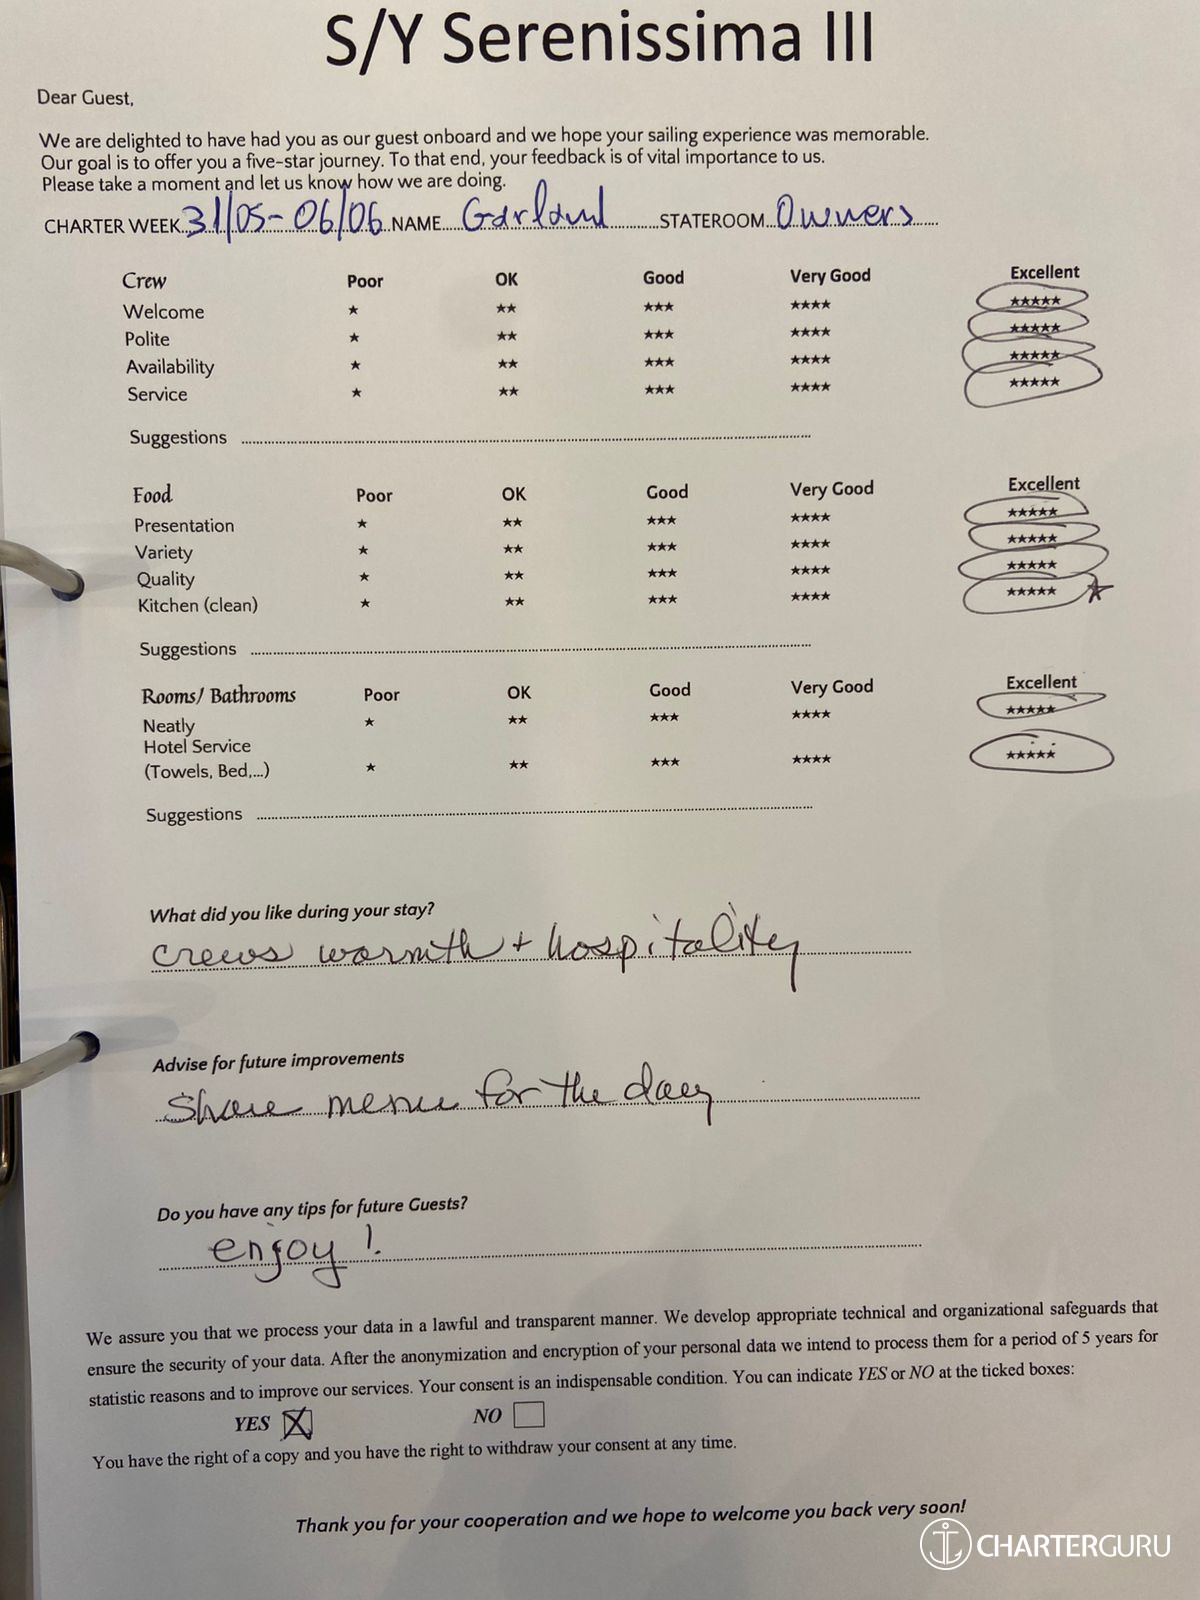 S/Y Serenissima III
Dear Guest,
We are delighted to have had you as our guest onboard and we hope your sailing experience was memorable.
Our goal is to offer you a five-star journey. To that end, your feedback is of vital importance to us.
Please take a moment and let us know how we are doing.
CHARTER WEEK 31/05-06/06 NAME Garland STATEROOM Owners
Crew Poor OK Good Very Good Excellent
Welcome ★ ★★ ★★★ ★★★★ ★★★★★
Polite ★ ★★ ★★★ ★★★★ ★★★★★
Availability ★ ★★ ★★★ ★★★★ ★★★★★
Service ★ ★★ ★★★ ★★★★ ★★★★★
Suggestions
Food Poor OK Good Very Good Excellent
Presentation ★ ★★ ★★★ ★★★★ ★★★★★
Variety ★ ★★ ★★★ ★★★★ ★★★★★
Quality ★ ★★ ★★★ ★★★★ ★★★★★
Kitchen (clean) ★ ★★ ★★★ ★★★★ ★★★★★ ★
Suggestions
Rooms/ Bathrooms Poor OK Good Very Good Excellent
Neatly ★ ★★ ★★★ ★★★★ ★★★★★
Hotel Service
(Towels, Bed,...) ★ ★★ ★★★ ★★★★ ★★★★★
Suggestions
What did you like during your stay?
crews warmth + hospitality
Advise for future improvements
Share menu for the day
Do you have any tips for future Guests?
enjoy!
We assure you that we process your data in a lawful and transparent manner. We develop appropriate technical and organizational safeguards that
ensure the security of your data. After the anonymization and encryption of your personal data we intend to process them for a period of 5 years for
statistic reasons and to improve our services. Your consent is an indispensable condition. You can indicate YES or NO at the ticked boxes:
YES X NO
You have the right of a copy and you have the right to withdraw your consent at any time.
Thank you for your cooperation and we hope to welcome you back very soon!
CHARTERGURU